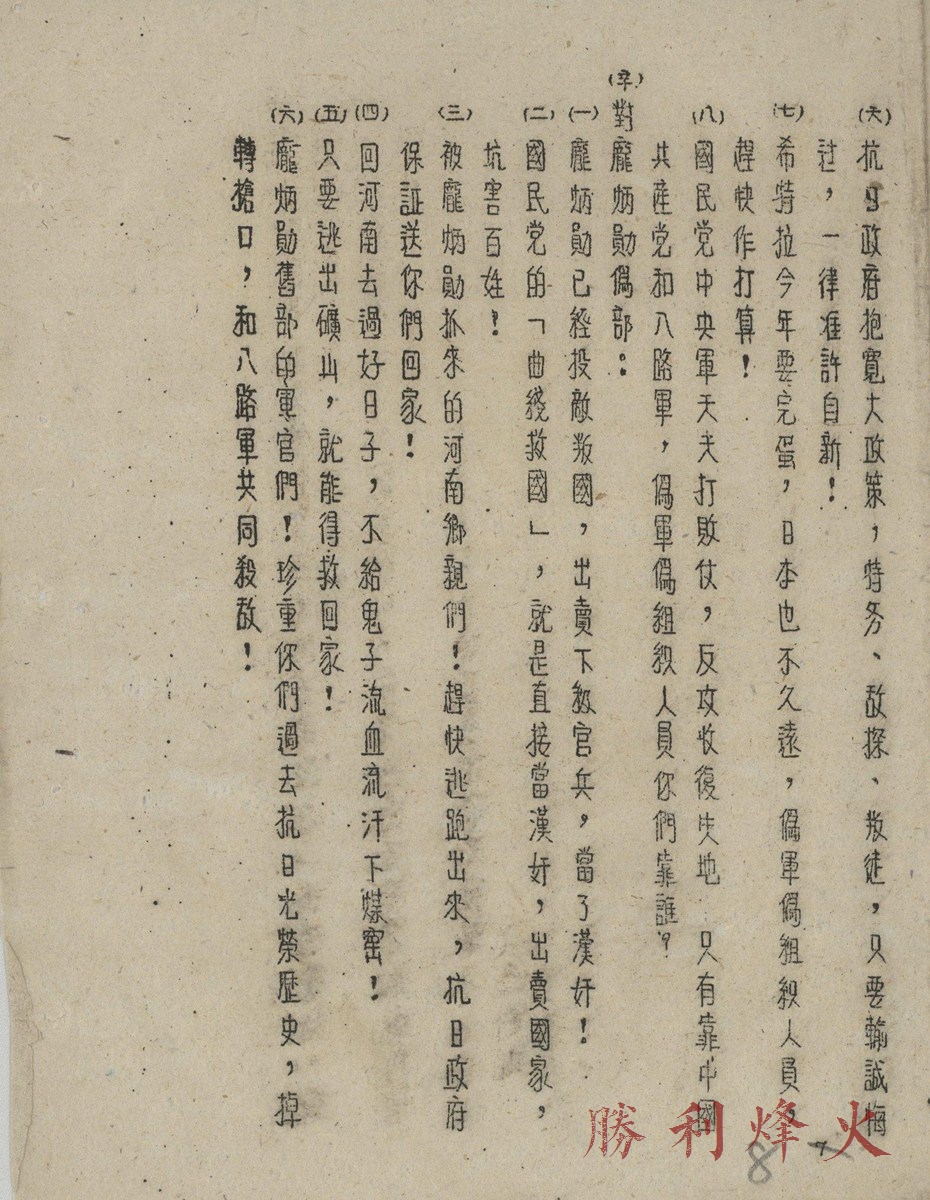 (六)抗日政府抱寬大政策，特务、敌探、叛徒，只要輸誠悔
过，一律准許自新！
(七)希特拉今年要完蛋，日本也不久遠，偽軍偽組织人員，
趕快作打算！
(八)國民党中央軍天天打敗仗，反攻收復失地 只有靠中國
共產党和八路軍，偽軍偽組织人員你們靠誰？
(辛)對龐炳勛偽部：
(一)龐炳勛已經投敵叛國，出賣下級官兵，當了漢奸！
(二)國民党的「曲綫救國」，就是直接當漢奸，出賣國家，
坑害百姓！
(三)被龐炳勛抓來的河南鄉親們！趕快逃跑出來，抗日政府
保証送你們回家！
(四)回河南去過好日子，不給鬼子流血流汗下煤窑！
(五)只要逃出礦山，就能得救回家！
(六)龐炳勛舊部的軍官們！珍重你們過去抗日光榮歷史，掉
轉槍口，和八路軍共同殺敌！
勝利烽火
8
7